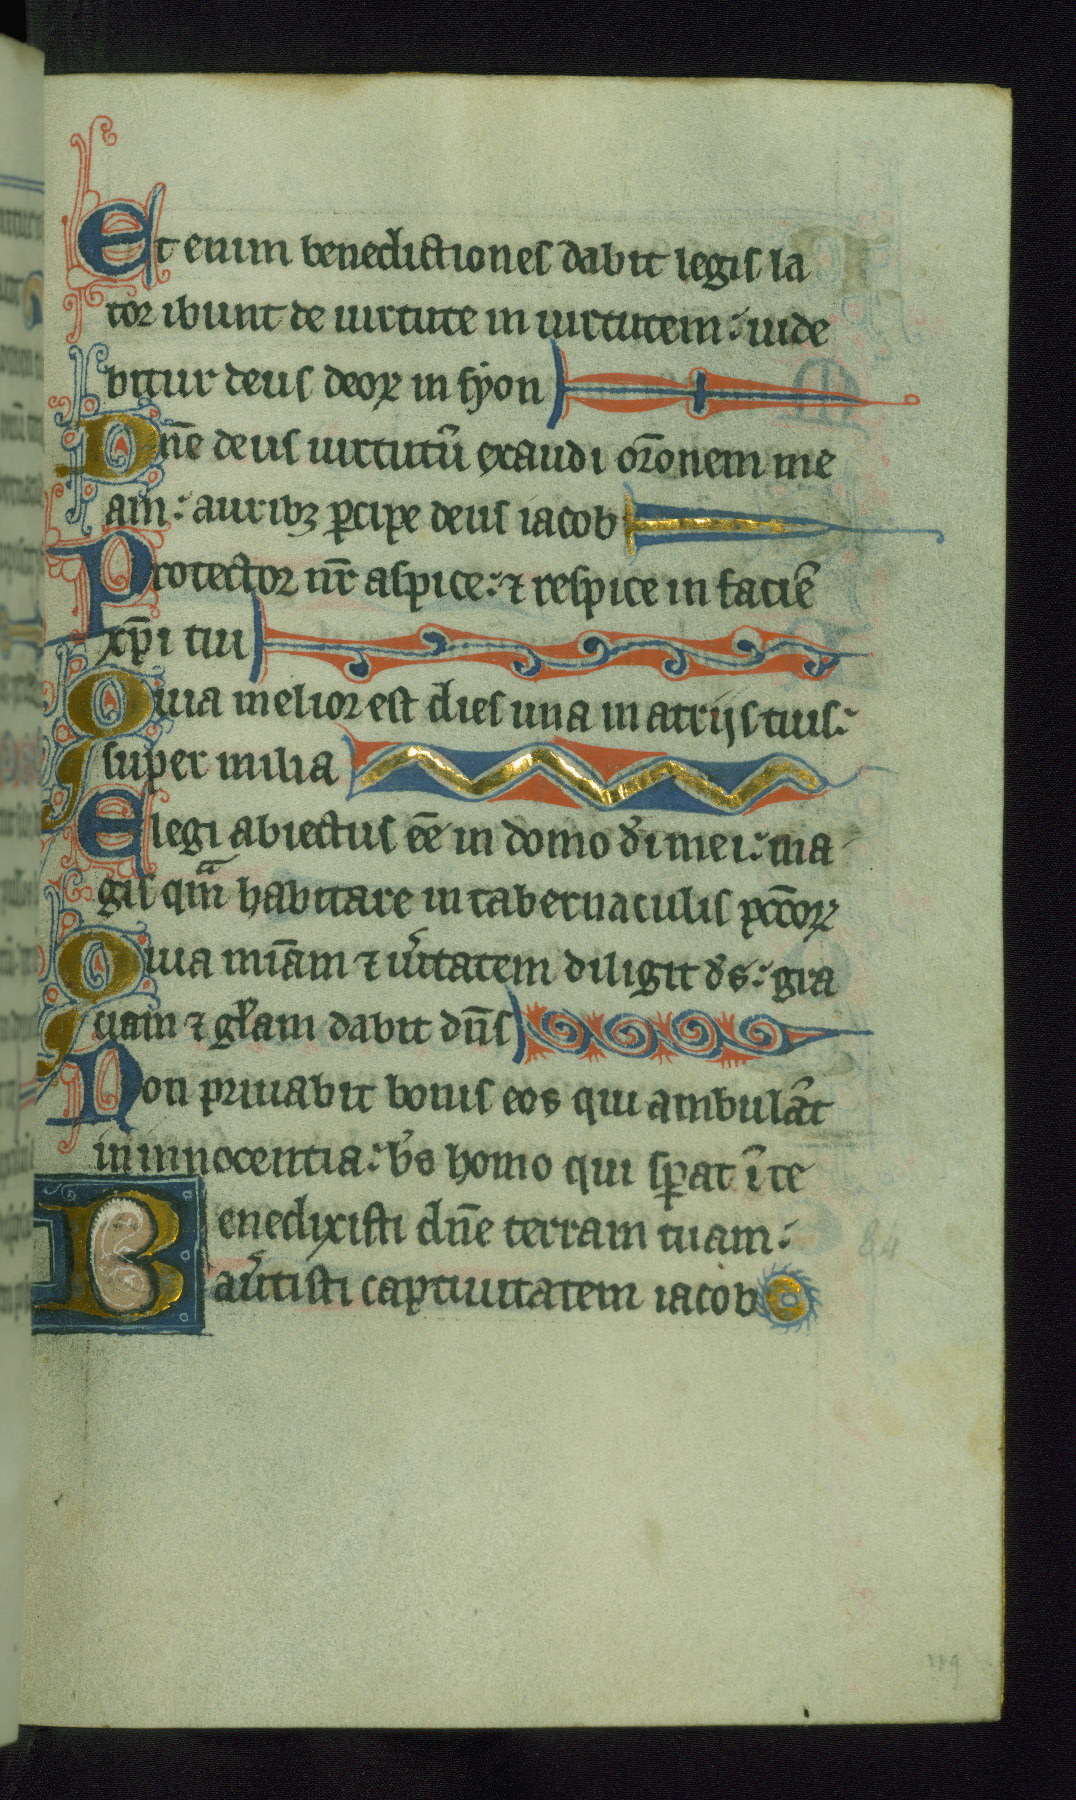 Et enim benedictiones dabit legis la
tor ibunt de uirtute in uirtutem: uide
bitur deus deoꝝ in syon
Dn̄e deus uirtutū exaudi or̄onem me
am: auribꝫ ꝑcipe deus iacob
Protector nr̄ aspice: ⁊ respice in faciē
xp̄i tui
Quia melior est dies una in atrijs tuis:
super milia
Elegi abiectus eē̄ in domo dī mei: ma
gis qͣm habitare in tabernaculis pcc̄oꝝ
Quia mīam ⁊ ùitatem diligit ds̄: gra
ciam ⁊ gl̄am dabit dn̄s
Non priuabit bonis eos qui ambulāt
in innocentia: bs̄ homo qui sꝑat ī te
Benedixisti dn̄e terram tuam:
au̾tisti captiuitatem iacob
84
119